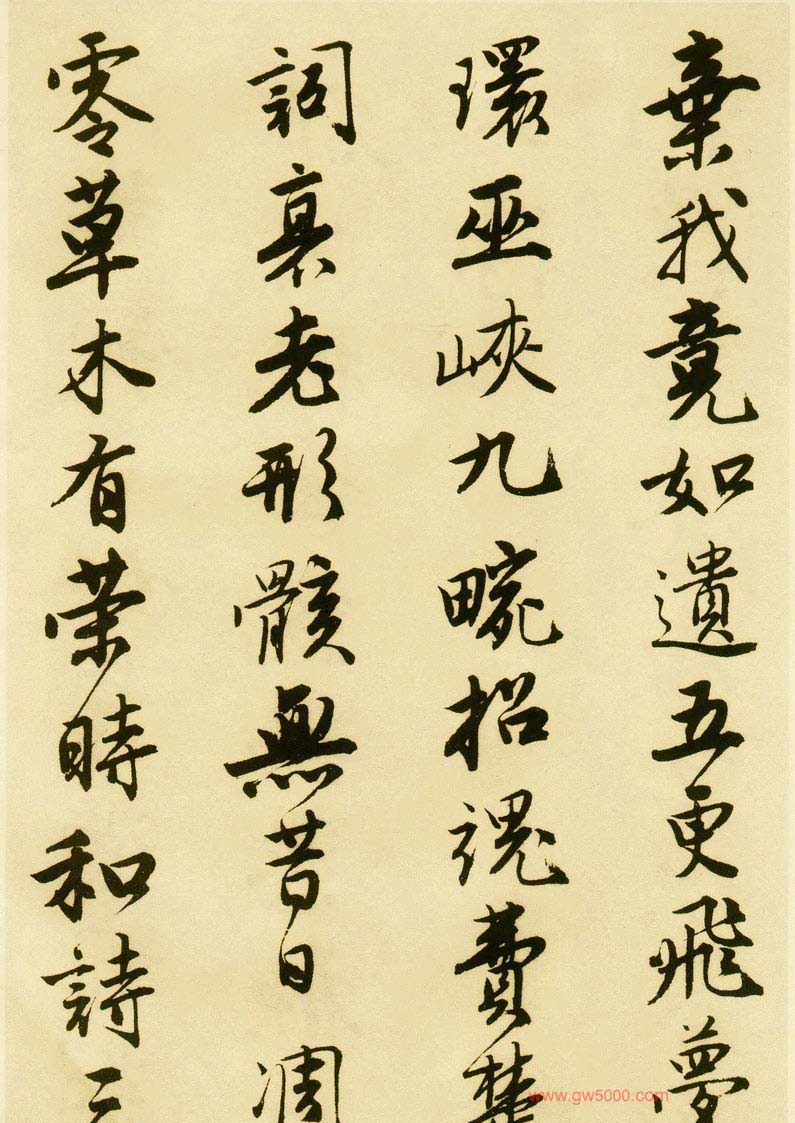 棄我竟如遺五更飛夢
環巫峽九畹招魂費楚
詞衰老形骸無昔日凋
零草木有榮時和詩三
www.gw5000.com